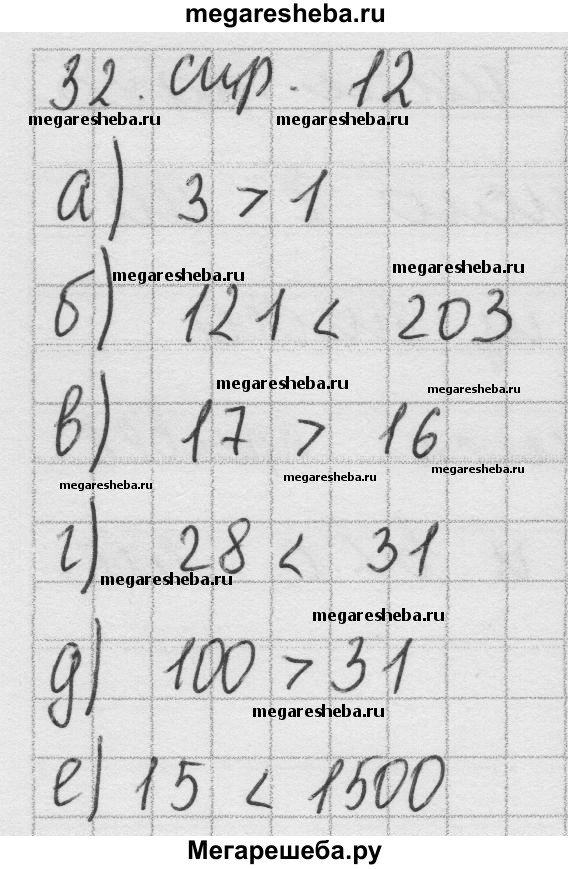 megaresheba.ru
32. стр. 12
megaresheba.ru megaresheba.ru
а) 3 > 1
megaresheba.ru megaresheba.ru
б) 121 < 203
megaresheba.ru megaresheba.ru
в) 17 > 16
megaresheba.ru megaresheba.ru megaresheba.ru
г) 28 < 31
megaresheba.ru
megaresheba.ru
д) 100 > 31
megaresheba.ru
е) 15 < 1500
Мегарешеба.ру